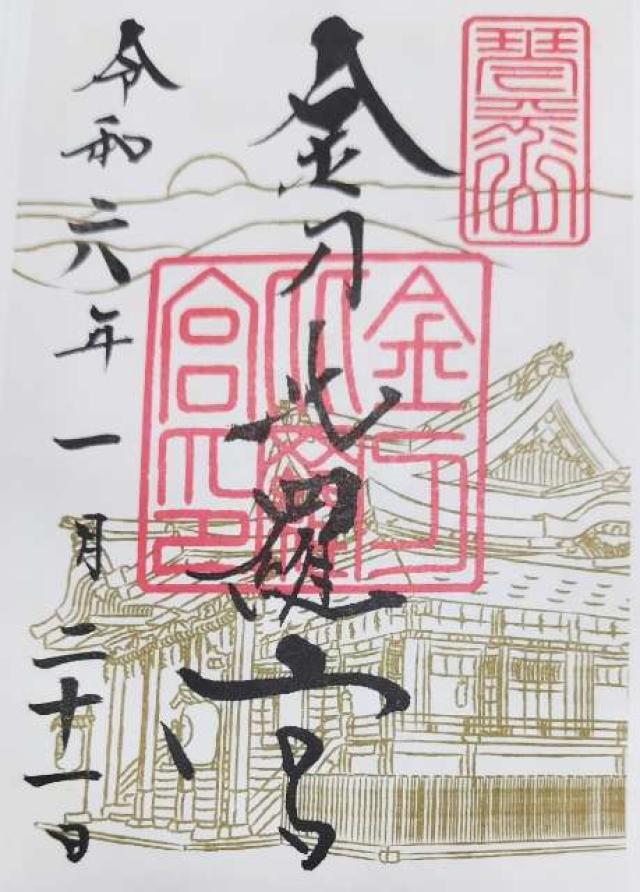 琴平山
金刀比羅宮
金刀
比羅
宮印
令和六年一月二十一日